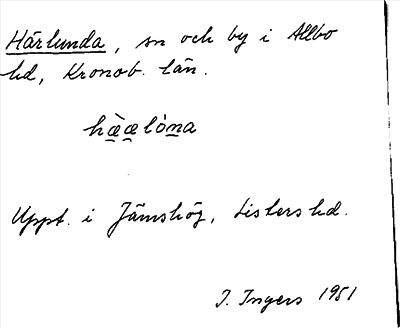 Härlunda, sn och by i Allbo
hd, Kronob. län.
hæ̀ælòna
Uppt. i Jämshög, Listers hd.
I. Ingers 1951